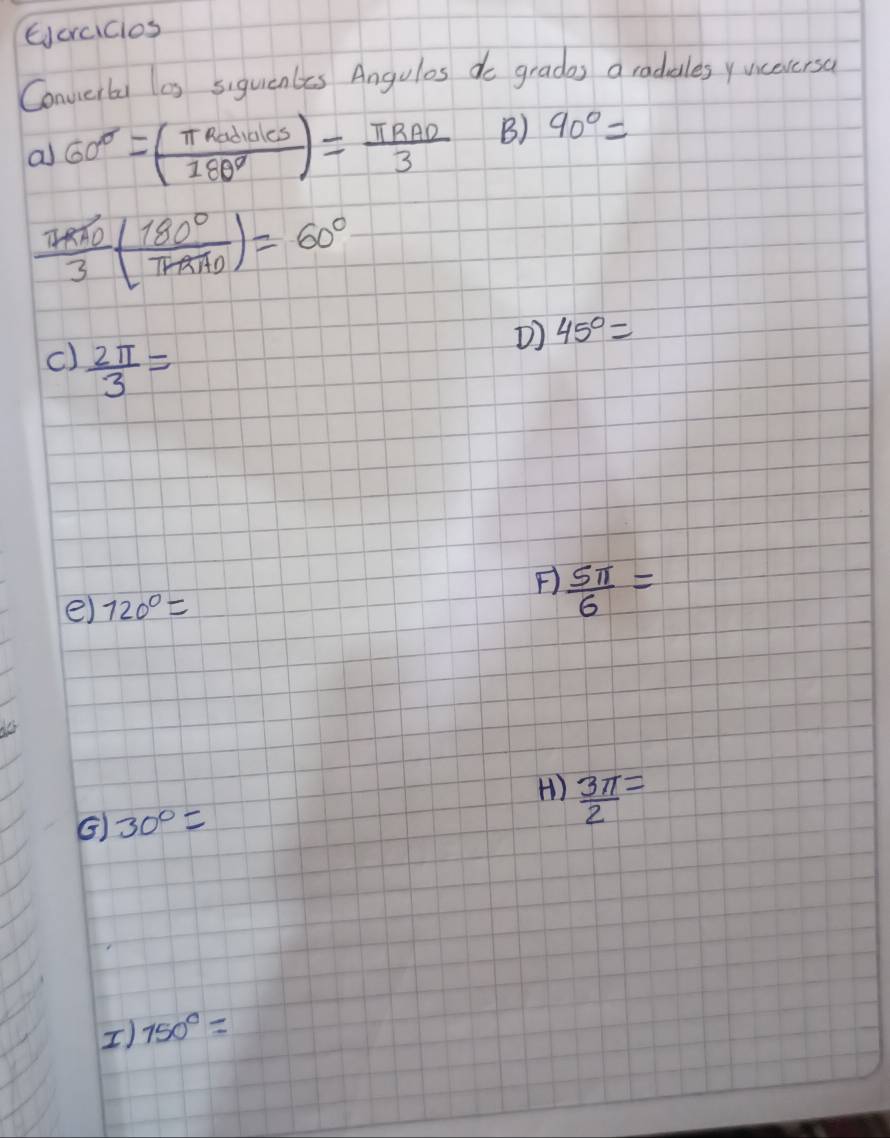 Ejercicios
Convierta los siguientes Angulos de grados a radiales y viceversa
a) 60° = (π Radiales / 180°) = πRAD / 3 B) 90° =
πRAD / 3 (180° / πRAD) = 60°
C) 2π / 3 = D) 45° =
e) 120° = F) 5π / 6 =
G) 30° = H) 3π / 2 =
I) 150° =